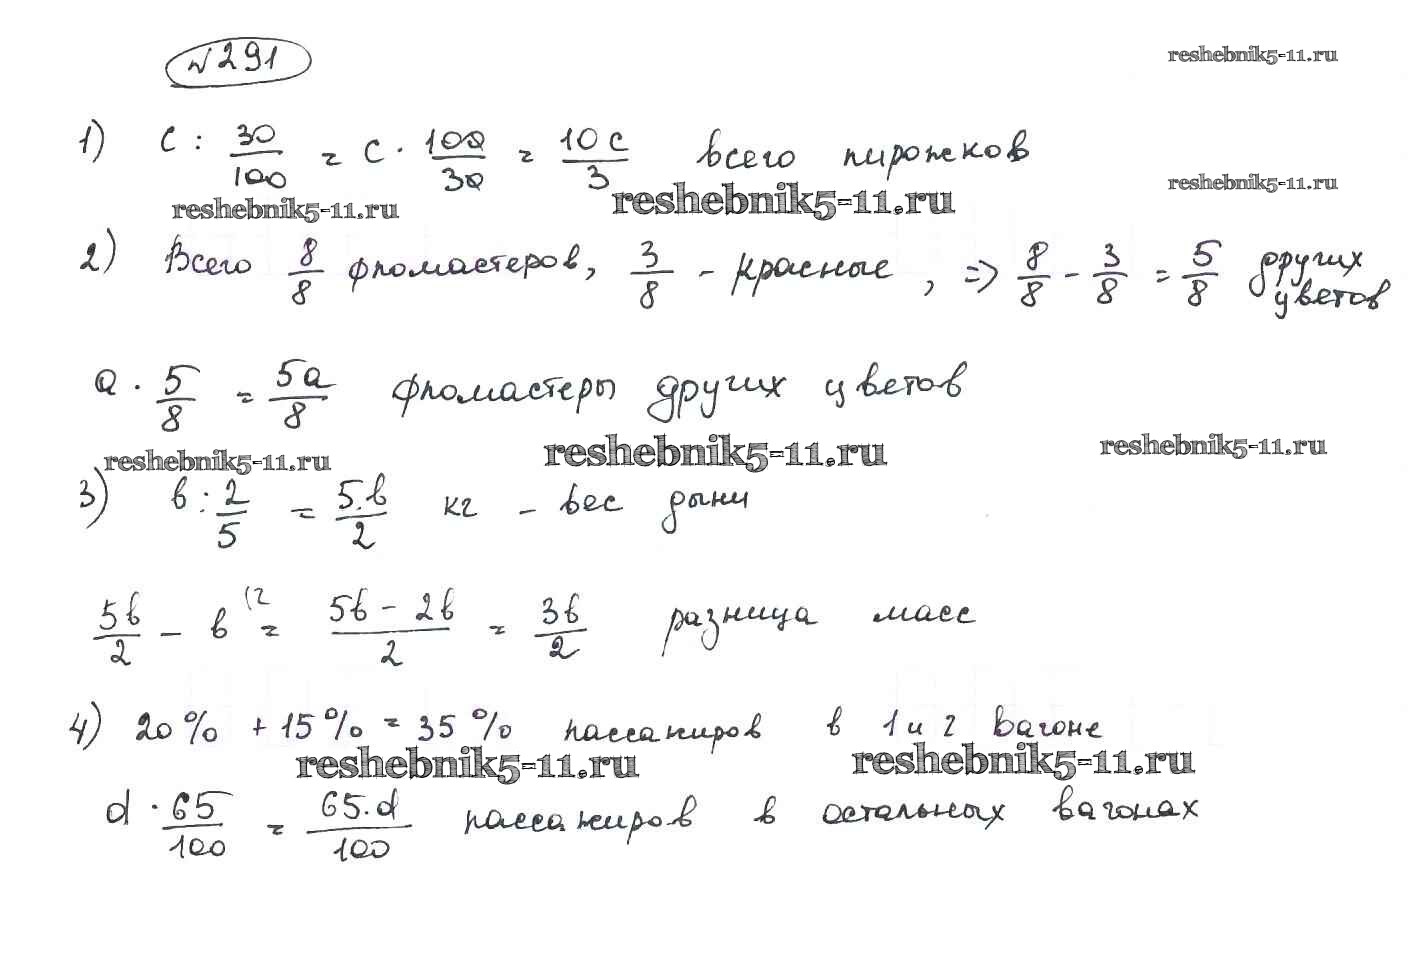 №291
reshebnik5-11.ru
1) c : 30/100 = c · 100/30 = 10c/3 всего пирожков
reshebnik5-11.ru
reshebnik5-11.ru reshebnik5-11.ru
2) Всего 8/8 фломастеров, 3/8 - красные, => 8/8 - 3/8 = 5/8 других цветов
a · 5/8 = 5a/8 фломастеры других цветов
reshebnik5-11.ru reshebnik5-11.ru reshebnik5-11.ru
3) b : 2/5 = 5·b/2 кг - вес дыни
5b/2 - b (2 = 5b - 2b/2 = 3b/2 разница масс
4) 20% + 15% = 35% пассажиров в 1 и 2 вагоне
reshebnik5-11.ru reshebnik5-11.ru
d · 65/100 = 65·d/100 пассажиров в остальных вагонах